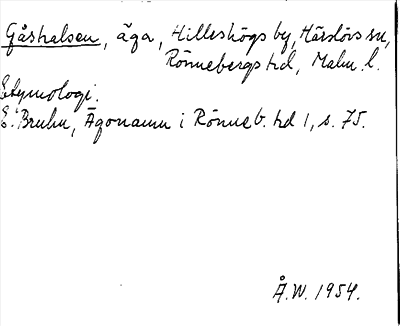 Gåshalsen, äga, Hilleshögs by, Härslövs sn,
Rönnebergs hd, Malm. l.
Etymologi.
E. Bruhn, Ägonamn i Rönneb. hd 1, s. 75.
Å.W. 1954.